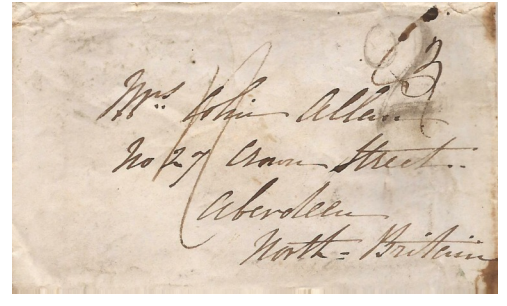 Mrs Colin Allan
No 27 Crown Street
Aberdeen
North = Britain